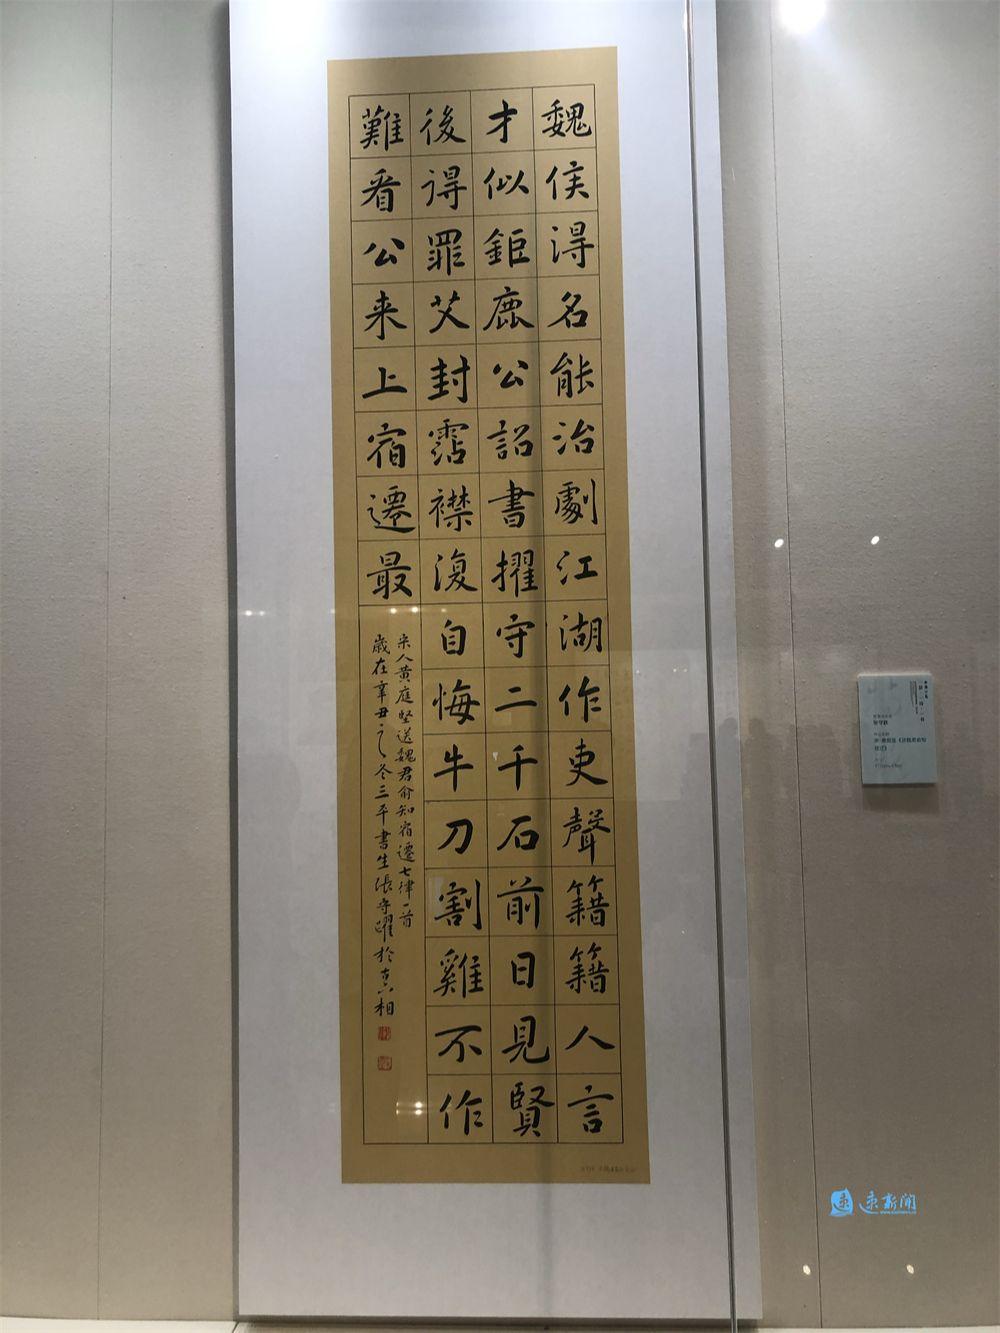 魏侯得名能治劇江湖作吏聲籍籍人言
才似鉅鹿公詔書擢守二千石前日見賢
後得罪艾封霑襟復自悔牛刀割雞不作
難看公来上宿遷最
宋人黄庭堅送魏君俞知宿遷七律一首
歲在辛丑之冬三平書生張守躍於真相
速新聞